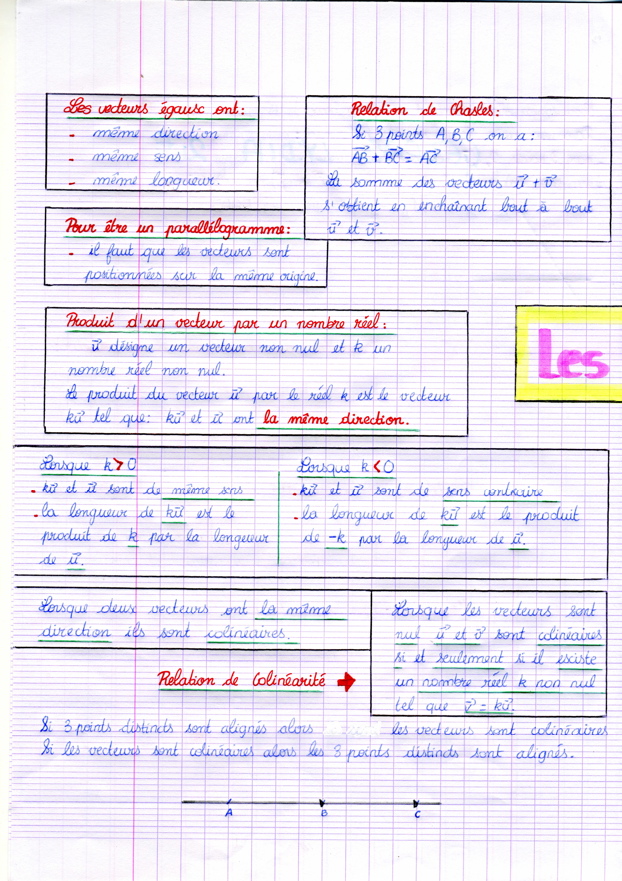 Les vecteurs égaux ont:
- même direction
- même sens
- même longueur.
Relation de Chasles:
Si 3 points A, B, C on a:
AB⃗ + BC⃗ = AC⃗
La somme des vecteurs u⃗ + v⃗
s'obtient en enchaînant bout à bout
u⃗ et v⃗.
Pour être un parallélogramme:
- il faut que les vecteurs sont
positionnées sur la même origine.
Produit d'un vecteur par un nombre réel:
u⃗ désigne un vecteur non nul et k un
nombre réel non nul.
Le produit du vecteur u⃗ par le réel k est le vecteur
ku⃗ tel que: ku⃗ et u⃗ ont la même direction.
Les
Lorsque k > 0
- ku⃗ et u⃗ sont de même sens
- la longueur de ku⃗ est le
produit de k par la longueur
de u⃗.
Lorsque k < 0
- ku⃗ et u⃗ sont de sens contraire
- la longueur de ku⃗ est le produit
de -k par la longueur de u⃗.
Lorsque deux vecteurs ont la même
direction ils sont colinéaires.
Lorsque les vecteurs sont
nul u⃗ et v⃗ sont colinéaires
si et seulement si il existe
un nombre réel k non nul
tel que v⃗ = ku⃗.
Relation de Colinéarité
Si 3 points distincts sont alignés alors les vecteurs sont colinéaires
Si les vecteurs sont colinéaires alors les 3 points distincts sont alignés.
A B C